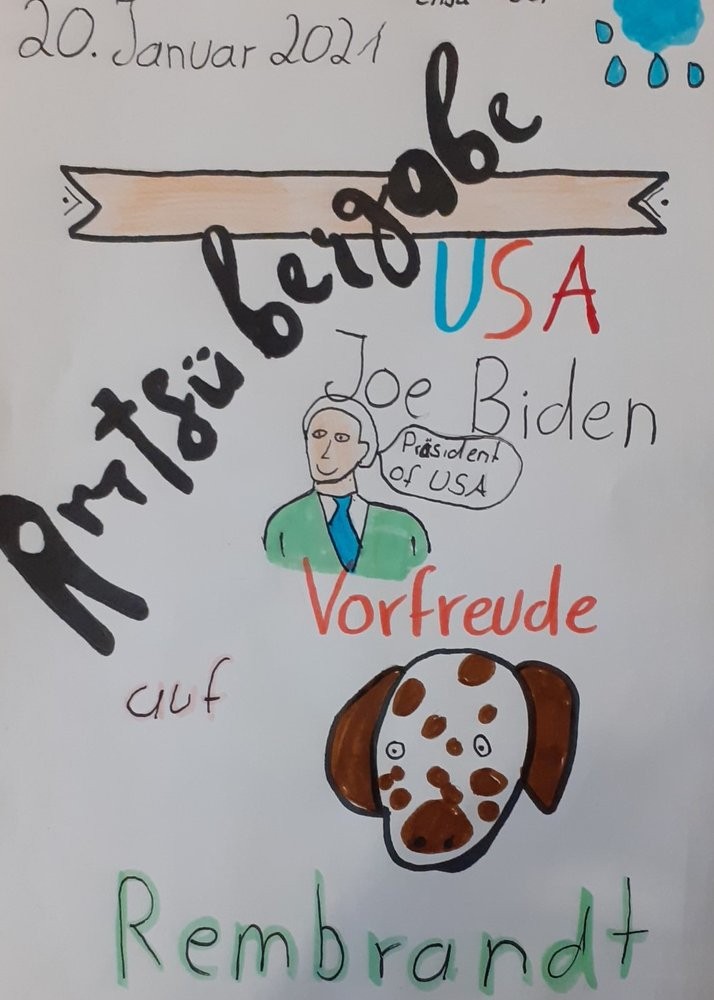 20. Januar 2021
Amtsübergabe
USA
Joe Biden
Präsident
of USA
Vorfreude
auf
Rembrandt